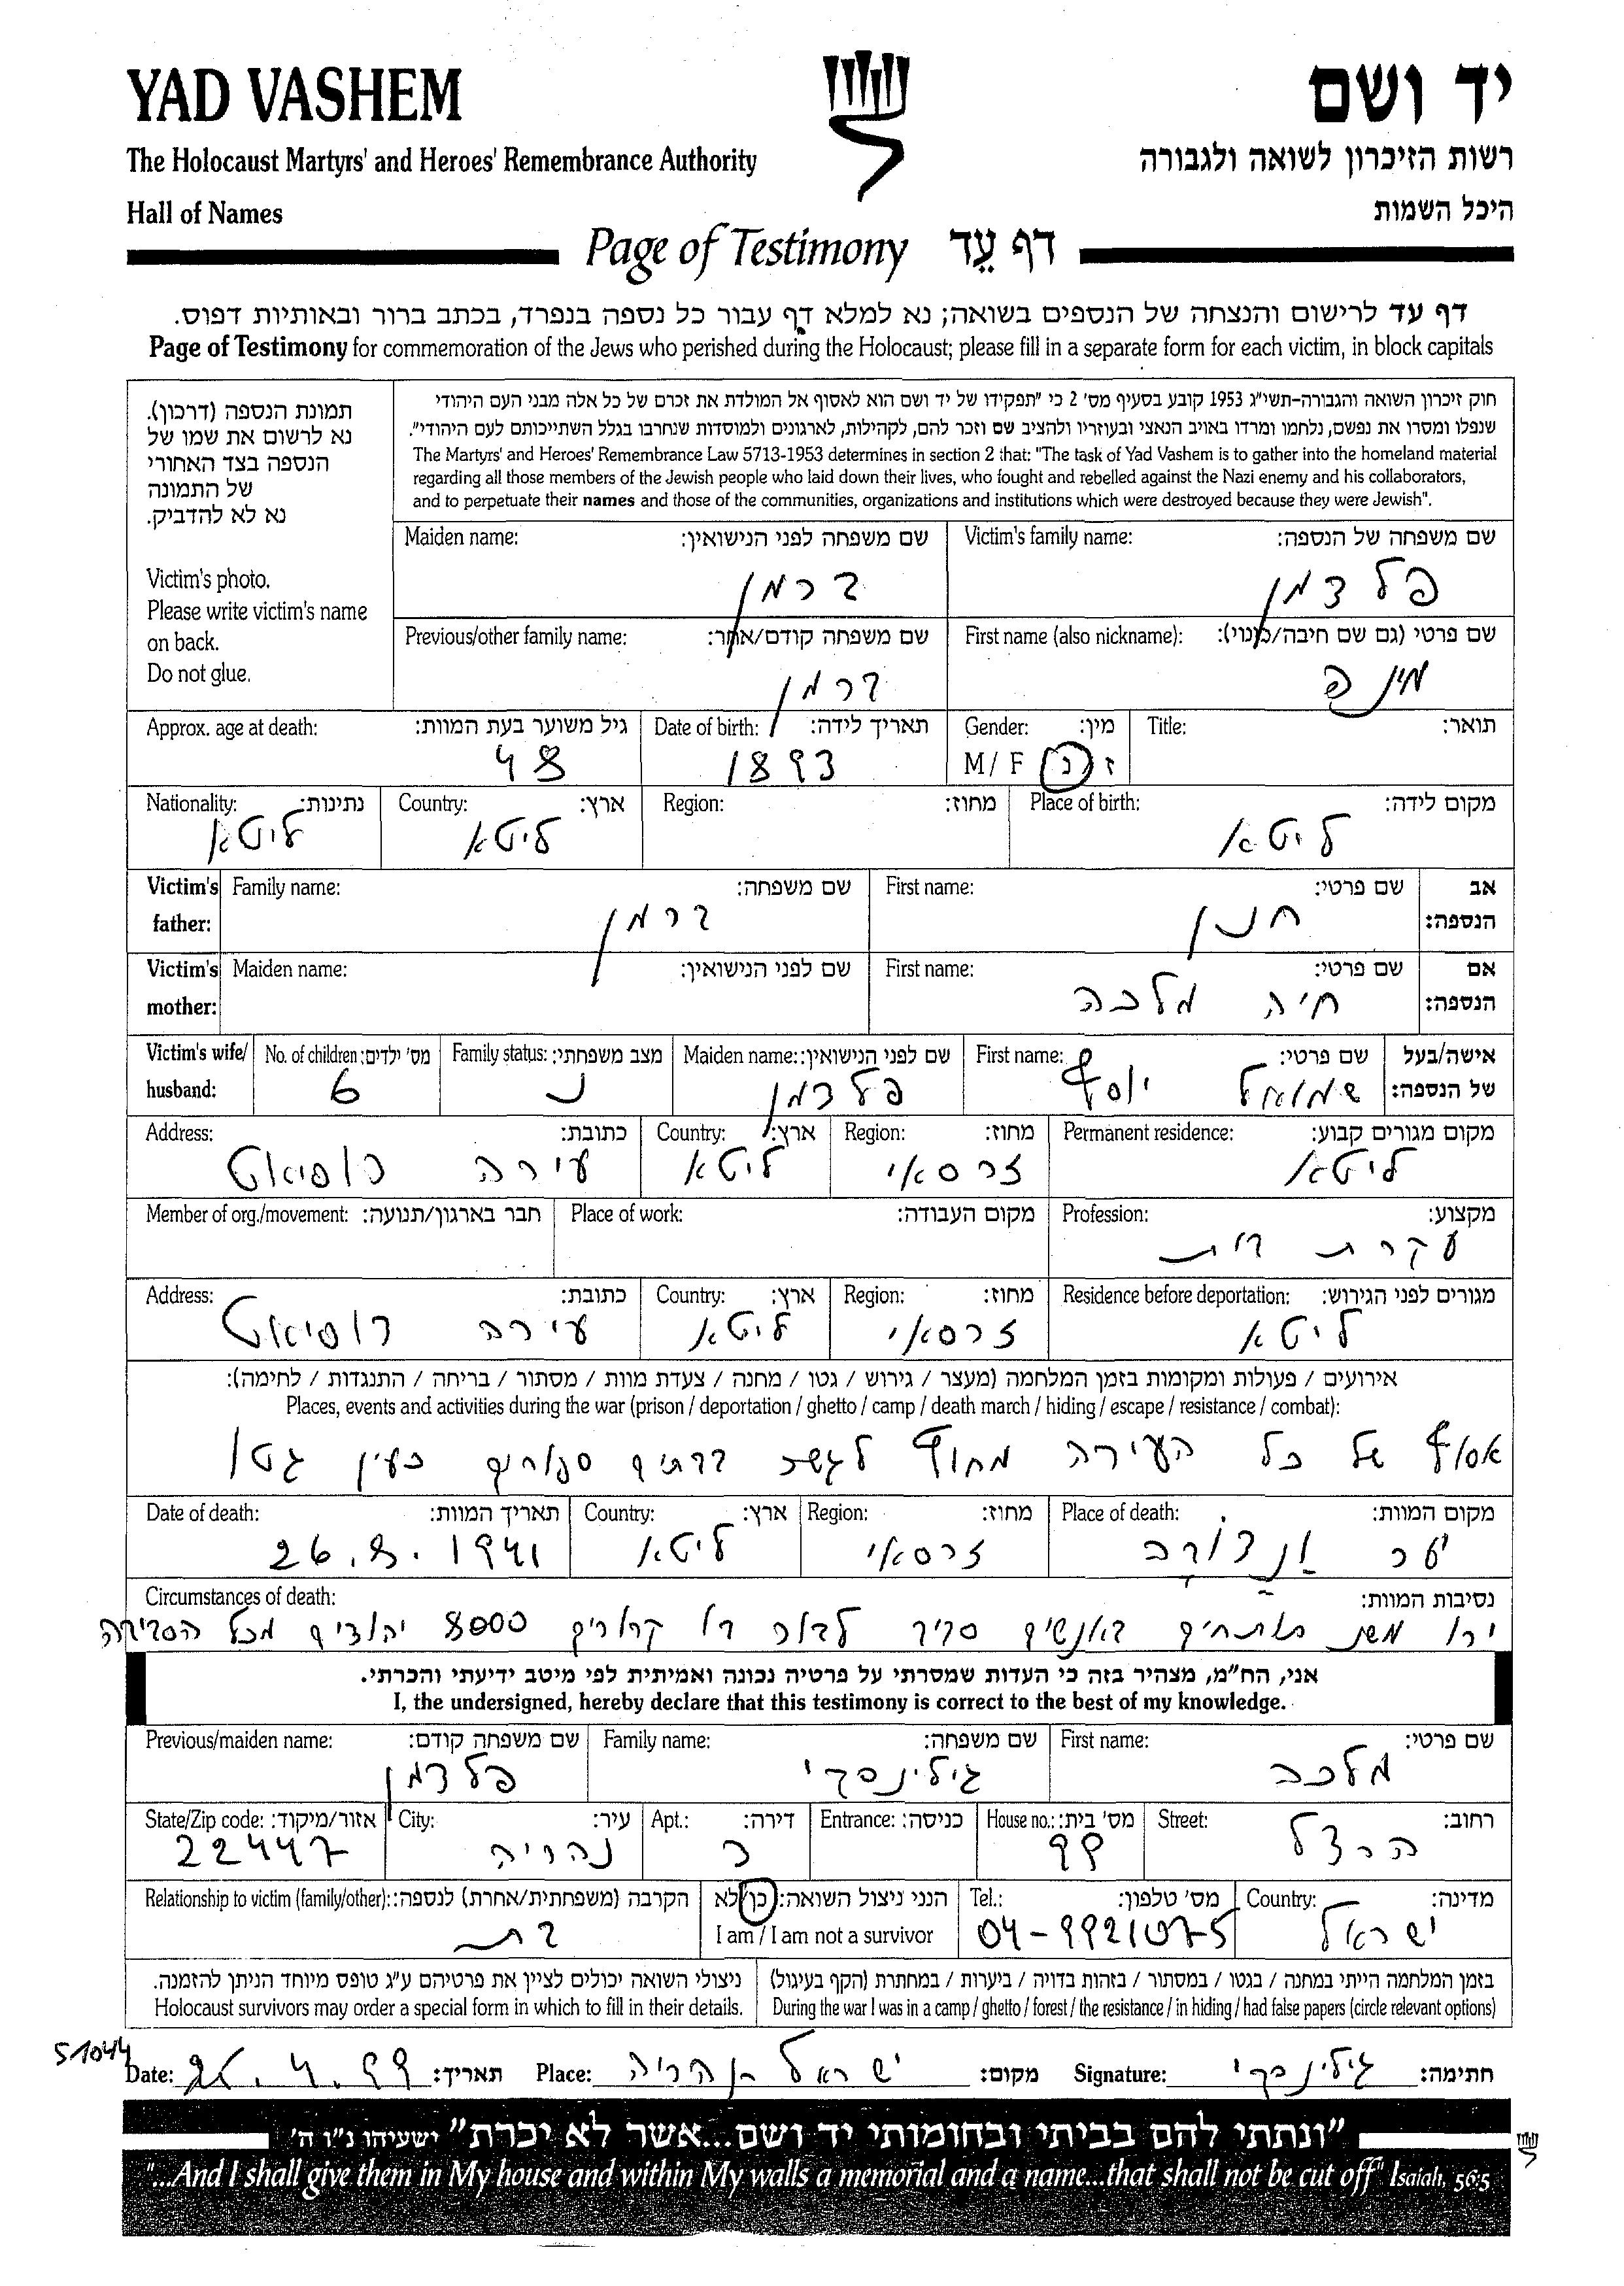 YAD VASHEM
יד ושם
The Holocaust Martyrs' and Heroes' Remembrance Authority
רשות הזיכרון לשואה ולגבורה
Hall of Names
היכל השמות
Page of Testimony דף עֵד
דף עד לרישום והנצחה של הנספים בשואה; נא למלא דף עבור כל נספה בנפרד, בכתב ברור ובאותיות דפוס.
Page of Testimony for commemoration of the Jews who perished during the Holocaust; please fill in a separate form for each victim, in block capitals
תמונת הנספה (דרכון).
נא לרשום את שמו של
הנספה בצד האחורי
של התמונה
נא לא להדביק.
Victim's photo.
Please write victim's name
on back.
Do not glue.
חוק זיכרון השואה והגבורה-תשי"ג 1953 קובע בסעיף מס' 2 כי "תפקידו של יד ושם הוא לאסוף אל המולדת את זכרם של כל אלה מבני העם היהודי
שנפלו ומסרו את נפשם, נלחמו ומרדו באויב הנאצי ובעוזריו ולהציב שם וזכר להם, לקהילות, לארגונים ולמוסדות שנחרבו בגלל השתייכותם לעם היהודי".
The Martyrs' and Heroes' Remembrance Law 5713-1953 determines in section 2 that: "The task of Yad Vashem is to gather into the homeland material
regarding all those members of the Jewish people who laid down their lives, who fought and rebelled against the Nazi enemy and his collaborators,
and to perpetuate their names and those of the communities, organizations and institutions which were destroyed because they were Jewish".
Victim's family name: שם משפחה של הנספה:
פלדמן
Maiden name: שם משפחה לפני הנישואין:
ברמן
First name (also nickname): שם פרטי (גם שם חיבה/כינוי):
Previous/other family name: שם משפחה קודם/אחר:
ברמן
Title: תואר:
Gender: מין:
M / F ז נ
Date of birth: תאריך לידה:
1893
Approx. age at death: גיל משוער בעת המוות:
48
Place of birth: מקום לידה:
ליטא
Region: מחוז:
Country: ארץ:
ליטא
Nationality: נתינות:
ליטא
Victim's father: אב הנספה:
First name: שם פרטי:
חנן
Family name: שם משפחה:
ברמן
Victim's mother: אם הנספה:
First name: שם פרטי:
חיה מלכה
Maiden name: שם לפני הנישואין:
Victim's wife/ husband: אישה/בעל של הנספה:
First name: שם פרטי:
שמואל יוסף
Maiden name: שם לפני הנישואין:
פלדמן
Family status: מצב משפחתי:
נ
No. of children: מס' ילדים:
6
Permanent residence: מקום מגורים קבוע:
ליטא
Region: מחוז:
זרסאי
Country: ארץ:
ליטא
Address: כתובת:
עירה
Profession: מקצוע:
עקרת בית
Place of work: מקום העבודה:
Member of org./movement: חבר בארגון/תנועה:
Residence before deportation: מגורים לפני הגירוש:
ליטא
Region: מחוז:
זרסאי
Country: ארץ:
ליטא
Address: כתובת:
עירה
אירועים / פעולות ומקומות בזמן המלחמה (מעצר / גירוש / גטו / מחנה / צעדת מוות / מסתור / בריחה / התנגדות / לחימה):
Places, events and activities during the war (prison / deportation / ghetto / camp / death march / hiding / escape / resistance / combat):
של כל העירה מחוץ לגשר בבתים כעין גטו
Place of death: מקום המוות:
יער
Region: מחוז:
זרסאי
Country: ארץ:
ליטא
Date of death: תאריך המוות:
26.8.1941
Circumstances of death: נסיבות המוות:
ירו באנשים סביב לבור קרובים 8000 יהודים מכל הסביבה
אני, הח"מ, מצהיר בזה כי העדות שמסרתי על פרטיה נכונה ואמיתית לפי מיטב ידיעתי והכרתי.
I, the undersigned, hereby declare that this testimony is correct to the best of my knowledge.
First name: שם פרטי:
מלכה
Family name: שם משפחה:
גילינסקי
Previous/maiden name: שם משפחה קודם:
פלדמן
Street: רחוב:
הרצל
House no.: מס' בית:
99
Entrance: כניסה:
Apt.: דירה:
City: עיר:
נהריה
State/Zip code: אזור/מיקוד:
22447
Country: מדינה:
ישראל
Tel.: מס' טלפון:
04-9921075
הנני ניצול השואה: כן/לא
I am / I am not a survivor
Relationship to victim (family/other): הקרבה (משפחתית/אחרת) לנספה:
בת
בזמן המלחמה הייתי במחנה / בגטו / במסתור / בזהות בדויה / ביערות / במחתרת (הקף בעיגול)
During the war I was in a camp / ghetto / forest / the resistance / in hiding / had false papers (circle relevant options)
ניצולי השואה יכולים לציין את פרטיהם ע"ג טופס מיוחד הניתן להזמנה.
Holocaust survivors may order a special form in which to fill in their details.
51044
Date: 26.4.99 תאריך: Place: ישראל נהריה מקום: Signature: גילינסקי חתימה:
"ונתתי להם בביתי ובחומותי יד ושם...אשר לא יכרת" ישעיהו נ"ו ה'
"...And I shall give them in My house and within My walls a memorial and a name...that shall not be cut off" Isaiah, 56:5